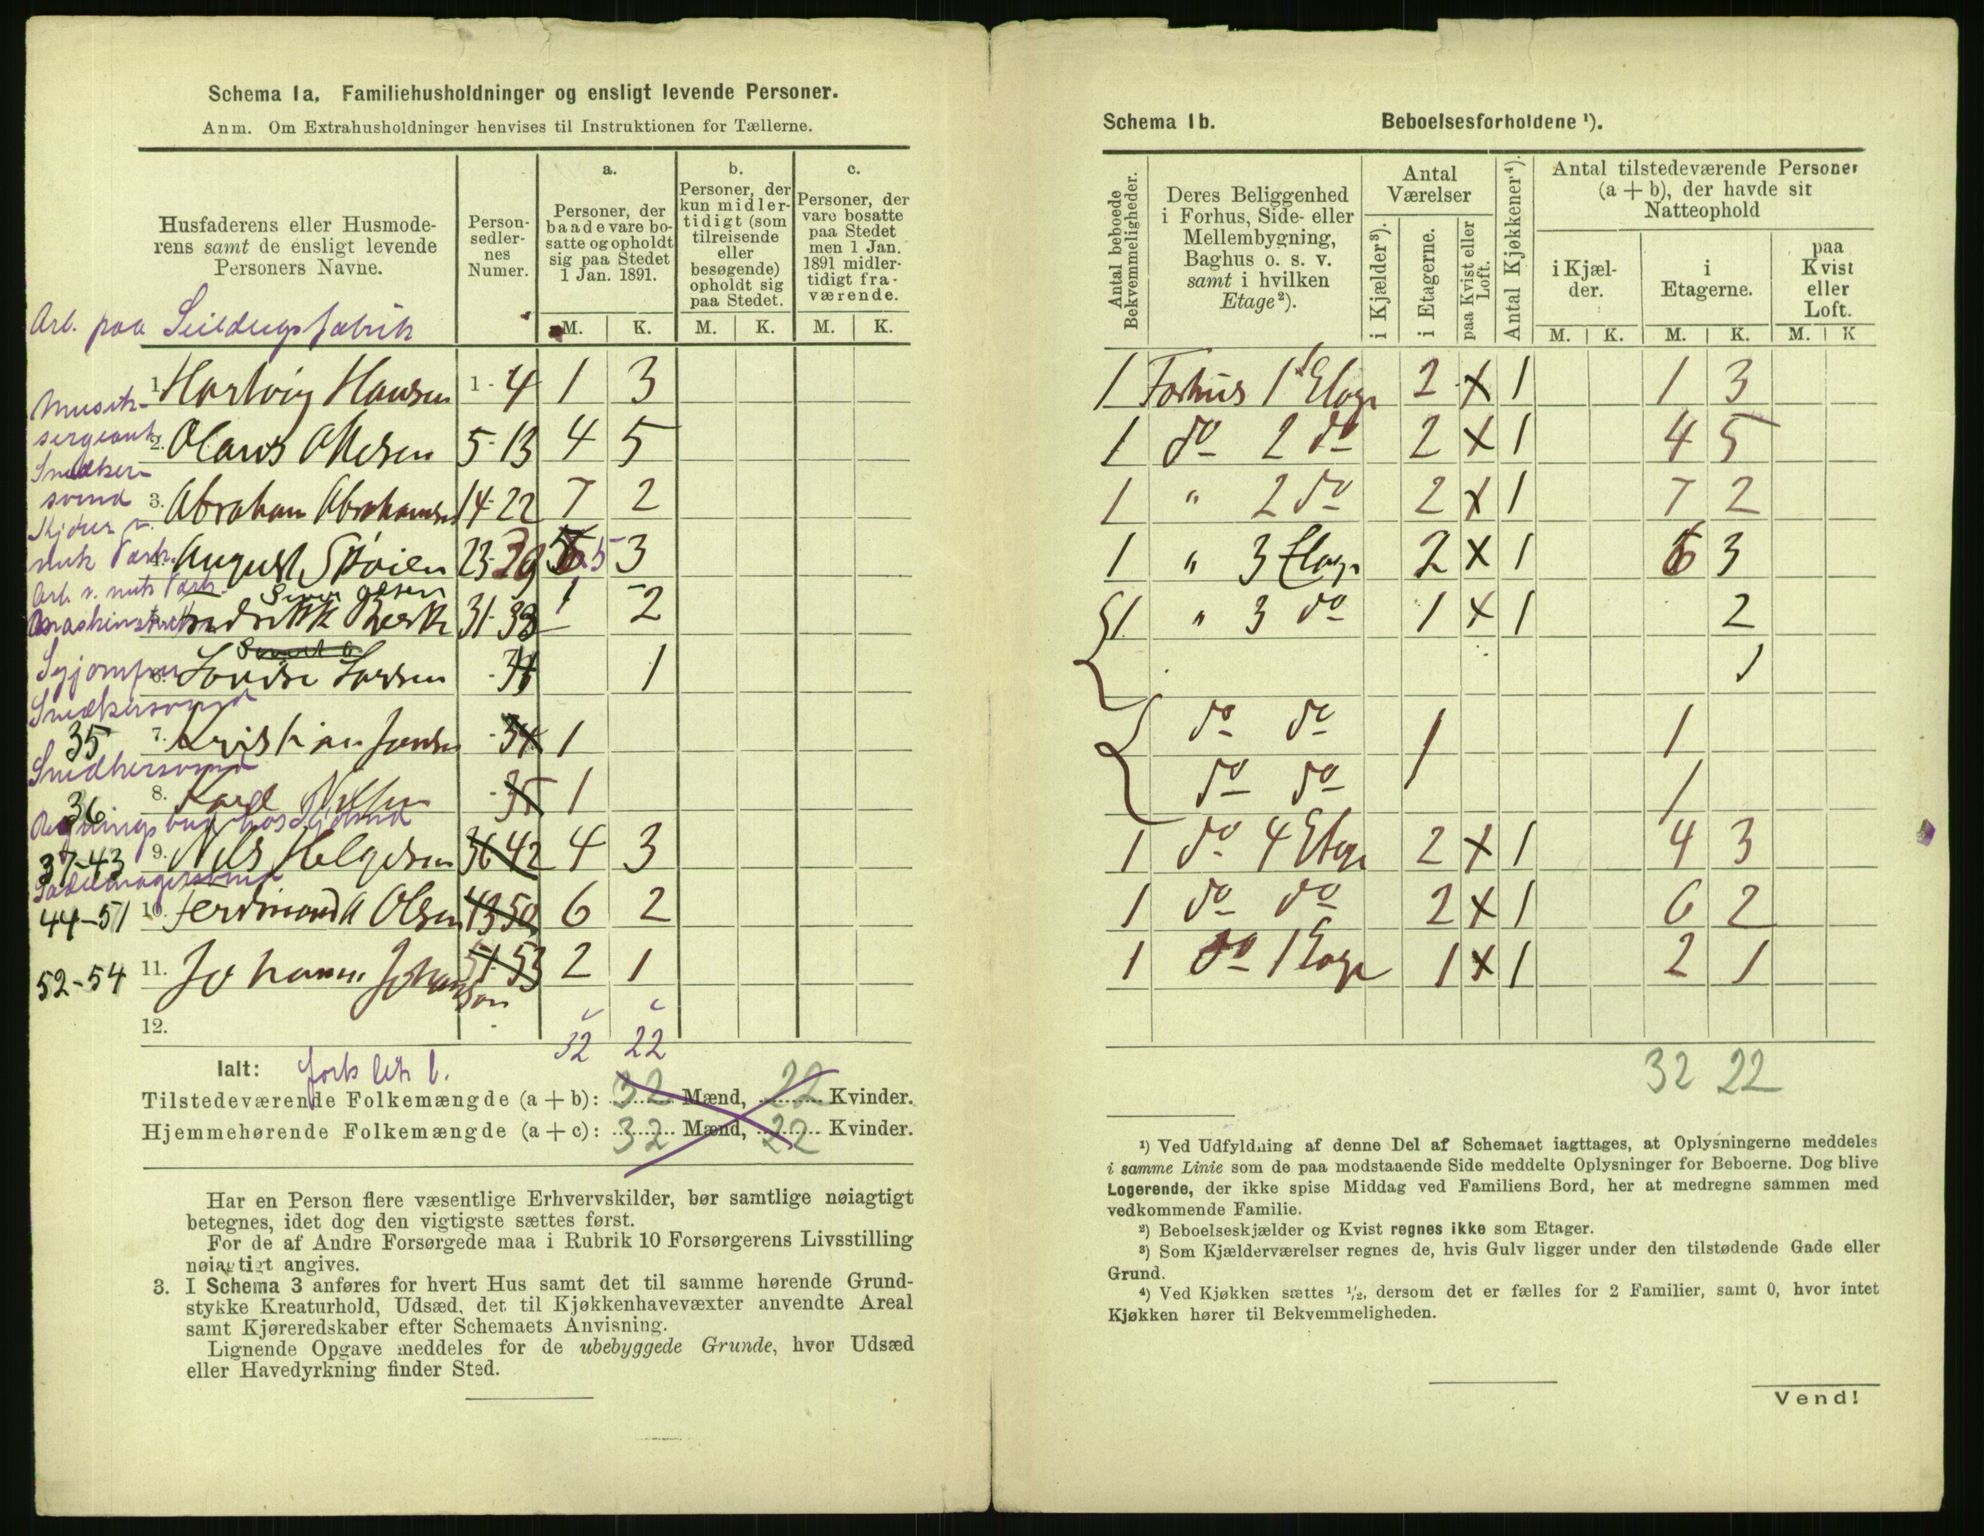 Schema 1a. Familiehusholdninger og ensligt levende Personer.
Anm. Om Extrahusholdninger henvises til Instruktionen for Tællerne.
Husfaderens eller Husmode-
rens samt de ensligt levende
Personers Navne.
Person-
sedler-
nes
Numer.
a.
Personer, der
baade vare bo-
satte og opholdt
sig paa Stedet
1 Jan. 1891.
b.
Personer, der
kun midler-
tidigt (som
tilreisende
eller
besøgende)
opholdt sig
paa Stedet.
c.
Personer, der
vare bosatte
paa Stedet
men 1 Jan.
1891 midler-
tidigt fra-
værende.
M. K. M. K. M. K.
Arb. paa Seildugsfabrik
1. Hartvig Hansen 1-4 1 3
Musik-
sergeant
2. Olaus Olesen 5-13 4 5
Snedker-
svend
3. Abraham Abrahamsen 14-22 7 2
4. August 23- 5 3
Fredrikk 31-33 1 2
Syjomfru
6. Lovise Larsen 1
Snedkersvend
35 7. Kristian Jensen 34 1
Snedkersvend
36 8. Karl 35 1
37-43 9. Nils Helgesen 36 42 4 3
44-51 10. Ferdinand A Olsen 43 50 6 2
52-54 11. Johannes Johansson 51-53 2 1
12.
32 22
Ialt:
Tilstedeværende Folkemængde (a + b): 32 Mænd, 22 Kvinder.
Hjemmehørende Folkemængde (a + c): 32 Mænd, 22 Kvinder.
Har en Person flere væsentlige Erhvervskilder, bør samtlige nøiagtigt
betegnes, idet dog den vigtigste sættes først.
For de af Andre Forsørgede maa i Rubrik 10 Forsørgerens Livsstilling
nøiagtigt angives.
3. I Schema 3 anføres for hvert Hus samt det til samme hørende Grund-
stykke Kreaturhold, Udsæd, det til Kjøkkenhavevæxter anvendte Areal
samt Kjøreredskaber efter Schemaets Anvisning.
Lignende Opgave meddeles for de ubebyggede Grunde, hvor Udsæd
eller Havedyrkning finder Sted.
Schema 1b. Beboelsesforholdene ¹).
Antal beboede
Bekvemmeligheder.
Deres Beliggenhed
i Forhus, Side- eller
Mellembygning,
Baghus o. s. v.
samt i hvilken
Etage²).
Antal
Værelser
i Kjælder³).
i Etagerne.
paa Kvist eller
Loft.
Antal Kjøkkener⁴).
Antal tilstedeværende Personer
(a + b), der havde sit
Natteophold
i Kjæl-
der.
i
Etagerne.
paa
Kvist
eller
Loft.
M. K. M. K. M. K
1 Forhus 1 Etage 2 x 1 1 3
1 do 2 do 2 x 1 4 5
1 " 2 do 2 x 1 7 2
1 " 3 Etage 2 x 1 3
1 " 3 do 1 x 1 2
1
do do 1 1
do do 1
1 do 4 Etage 2 x 1 4 3
1 do do 2 x 1 6 2
1 do 1 Etage 1 x 1 2 1
32 22
¹) Ved Udfyldning af denne Del af Schemaet iagttages, at Oplysningerne meddeles
i samme Linie som de paa modstaaende Side meddelte Oplysninger for Beboerne. Dog blive
Logerende, der ikke spise Middag ved Familiens Bord, her at medregne sammen med
vedkommende Familie.
²) Beboelseskjælder og Kvist regnes ikke som Etager.
³) Som Kjælderværelser regnes de, hvis Gulv ligger under den tilstødende Gade eller
Grund.
⁴) Ved Kjøkken sættes ½, dersom det er fælles for 2 Familier, samt 0, hvor intet
Kjøkken hører til Bekvemmeligheden.
Vend!